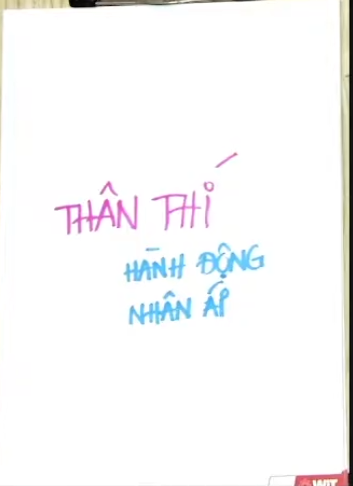 THÂN THÍ
HÀNH ĐỘNG
NHÂN ÁP
WIT